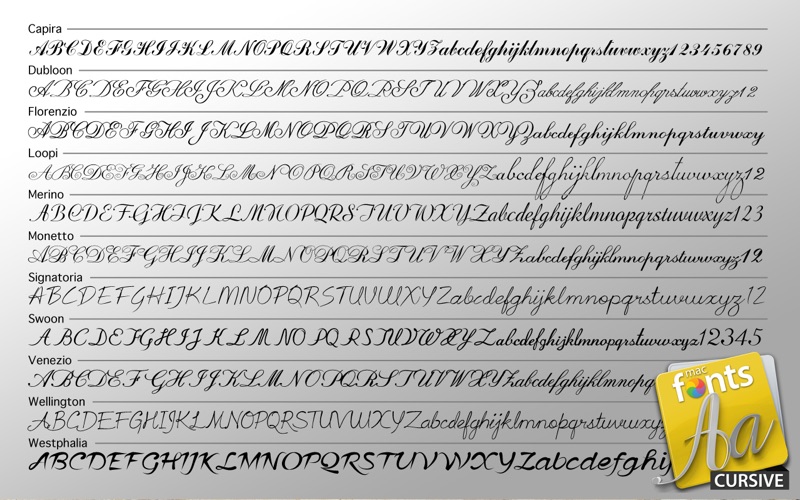 Capira
ABCDEFGHIJKLMNOPQRSTUVWXYZabcdefghijklmnopqrstuvwxyz123456789
Dubloon
ABCDEFGHIJKLMNOPQRSTUVWXYZabcdefghijklmnopqrstuvwxyz12
Florenzio
ABCDEFGHIJKLMNOPQRSTUVWXYZabcdefghijklmnopqrstuvwxy
Loopi
ABCDEFGHIJKLMNOPQRSTUVWXYZabcdefghijklmnopqrstuvwxyz12
Merino
ABCDEFGHIJKLMNOPQRSTUVWXYZabcdefghijklmnopqrstuvwxyz123
Monetto
ABCDEFGHIJKLMNOPQRSTUVWXYZabcdefghijklmnopqrstuvwxyz12
Signatoria
ABCDEFGHIJKLMNOPQRSTUVWXYZabcdefghijklmnopqrstuvwxyz12
Swoon
ABCDEFGHIJKLMNOPQRSTUVWXYZabcdefghijklmnopqrstuvwxyz12345
Venezio
ABCDEFGHIJKLMNOPQRSTUVWXYZabcdefghijklmnopqrstuvw
Wellington
ABCDEFGHIJKLMNOPQRSTUVWXYZabcdefghijklmnopqrstuvwxyz
Westphalia
ABCDEFGHIJKLMNOPQRSTUVWXYZabcdefghij
mac
fonts
Aa
CURSIVE